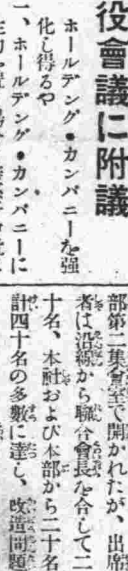 役會議に附議
ホールデング・カンパニーを强
化し得るや
一、ホールデング・カンパニーに
部第二集會室で開かれたが、出席
者は沿線から聯合會長を合して二
十名、本社および本部から二十名
計四十名の多數に達し、改造問題